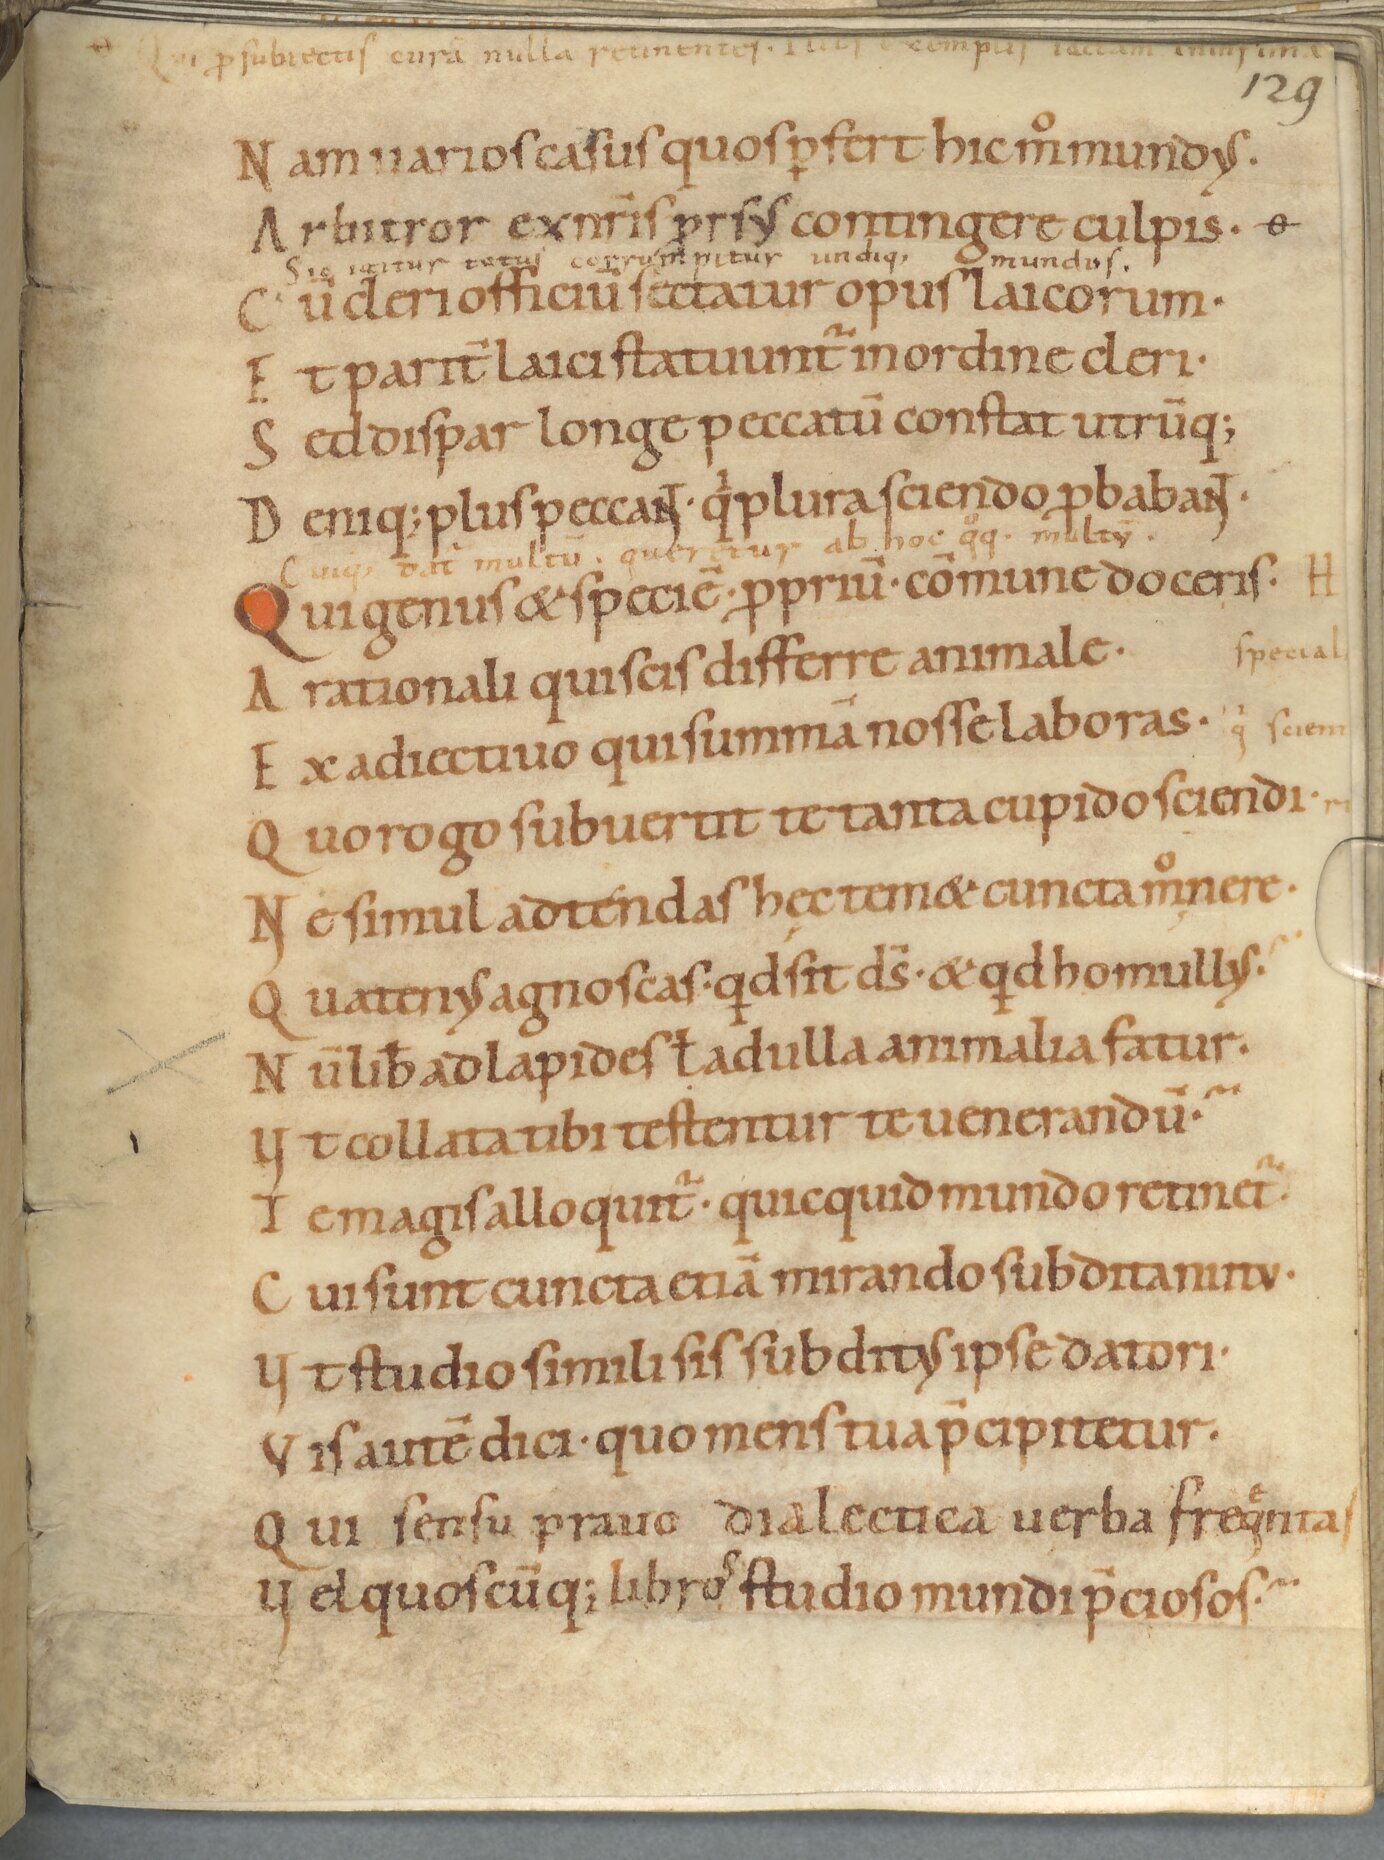 Qui ꝓsubiectis curā nulla retinentes. exemplis
129
Nam uarios casus quos p̱fert hic m̊ mundꝰ.
Arbitror exnr̄is prsꝰ contingere culpis.
Sic igitur totus corrumpitur undiq; mundus.
Cū cleri officiū sectatur opus laicorum.
Et parit̄ laici statuunt̃ inordine cleri.
Sed dispar longe peccatū constat utrūq;
Deniq; plus peccant. qͥ plura sciendo ꝓbabant.
Cuiq; dat̄ multū. queretur ab hoc qͦq. multū.
Qui genus & speciē. ꝓpriū. cōmune doceris. H
Arationali qui scis differre animale. special
Ex adiectiuo qui summā nosse laboras. qͥ sciem
Quo rogo subuertit te tanta cupido sciendi.
Ne simul adtendas hęc tem& cuncta m̊nere.
Quatenꝰ agnoscas. qd sit ds̄. & qd homullꝰ.
Nū lib& adlapides ł adulla animalia fatur.
Ut collata tibi testentur te uenerandū.
Te magis alloquit̃. quicquid mundo retinet̃.
Cui sunt cuncta etiā mirando subdita nutu.
Ut studio simili sis subditꝰ ipse datori.
Vis autē dici. quo mens tua p̄cipitetur.
Qui sensu prauo dialectica uerba freqͤntas
Vel quoscūq; libros studio mundi p̄ciosos.